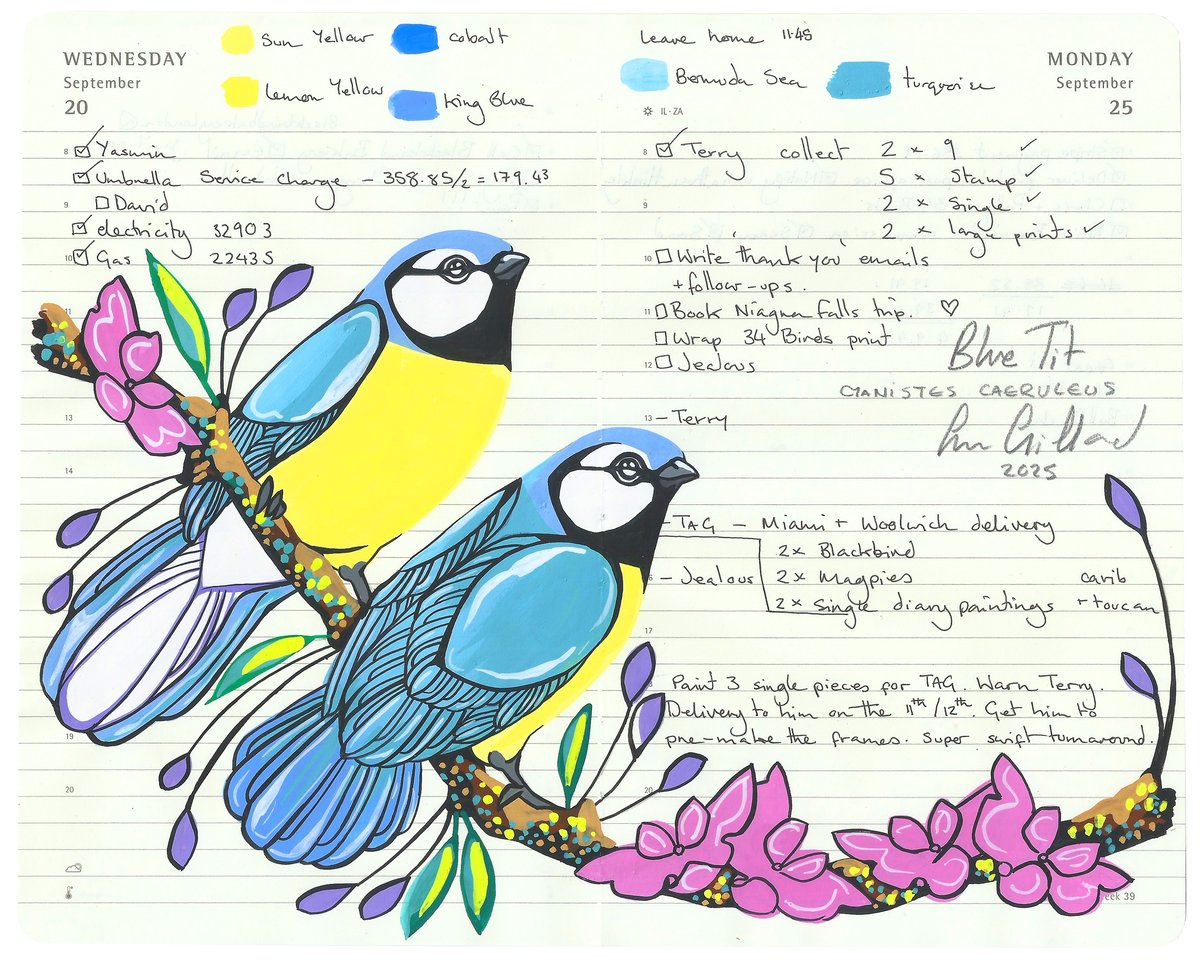 WEDNESDAY
September
20
Sun Yellow
cobalt
Lemon Yellow
King Blue
8 Yasmin
Umbrella Service charge - 358.85/2 = 179.43
9 David
electricity 32903
10 Gas 22435
11
13
14
19
20
Leave home 11.45
MONDAY
September
25
Bermuda Sea
turquoise
IL · ZA
8 Terry collect 2 x 9
5 x Stamp
9 2 x Single
2 x large prints
10 Write 'thank you' emails
+ follow-ups.
11 Book Niagra Falls trip. ♡
Wrap 34 Birds print
12 Jealous
Blue Tit
CYANISTES CAERULEUS
13 - Terry
2025
- TAG - Miami + Woolwich delivery
2x Blackbird
- Jealous 2x Magpies carib
2x Single diary paintings + toucan
17
Paint 3 single pieces for TAG. Warn Terry.
Delivery to him on the 11th/12th. Get him to
pre-make the frames. Super swift turnaround.
20
eek 39